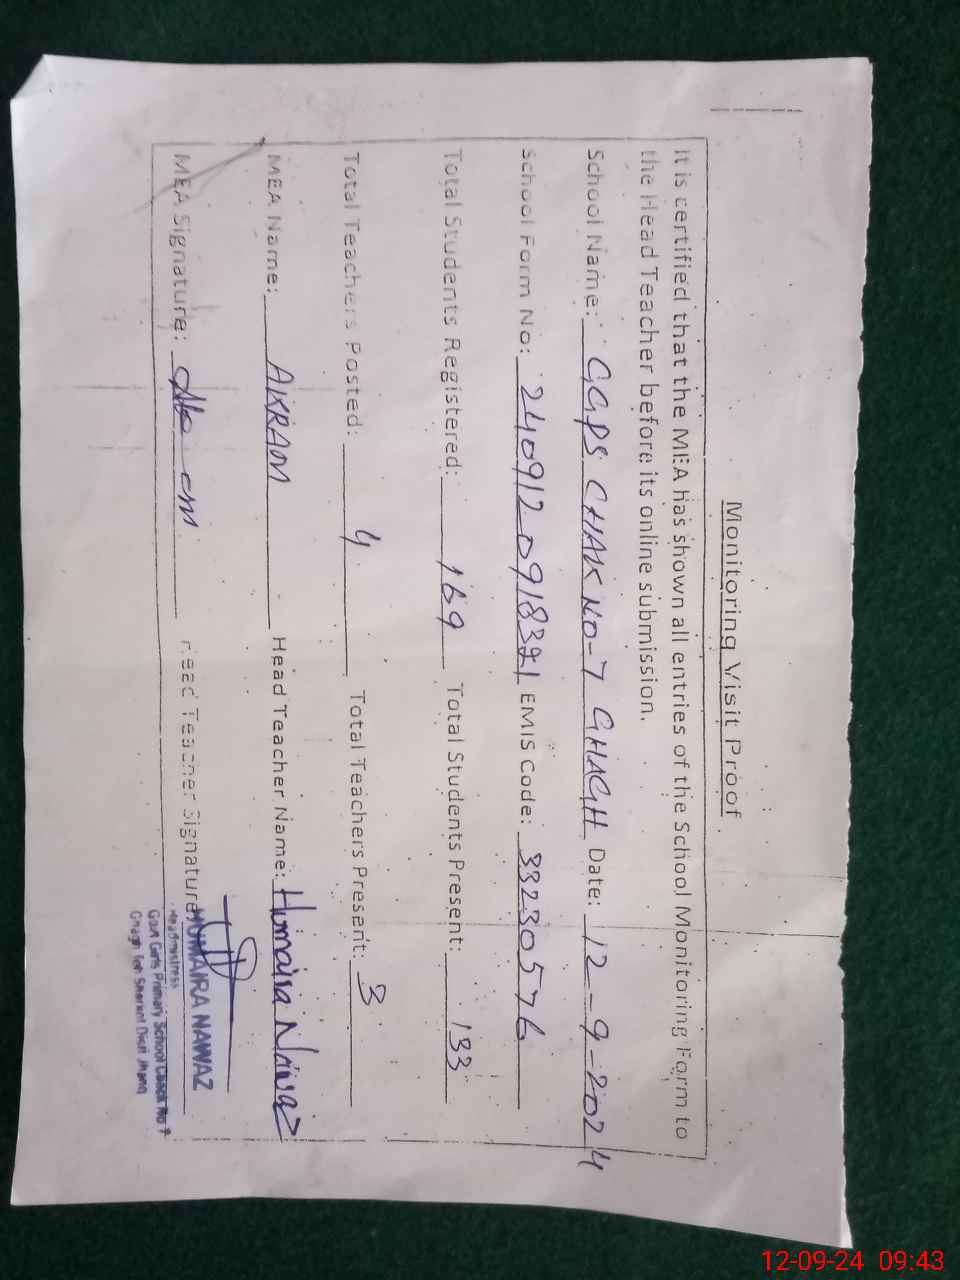 Monitoring Visit Proof
It is certified that the MEA has shown all entries of the School Monitoring Form to
the Head Teacher before its online submission.
School Name: GGPS CHAK NO-7 GHAGH Date: 12-9-2024
School Form No: 240912_091839_1 EMIS Code: 33230576
Total Students Registered: 169 Total Students Present: 133
Total Teachers Posted: 4 Total Teachers Present: 3
MEA Name: AKRAM Head Teacher Name: Humaira Nawaz
MEA Signature: Head Teacher Signature
HUMAIRA NAWAZ
Headmistress
Govt Girls Primary School Chak No 7
Ghagh Teh Shorkot Distt Jhang
12-09-24 09:43